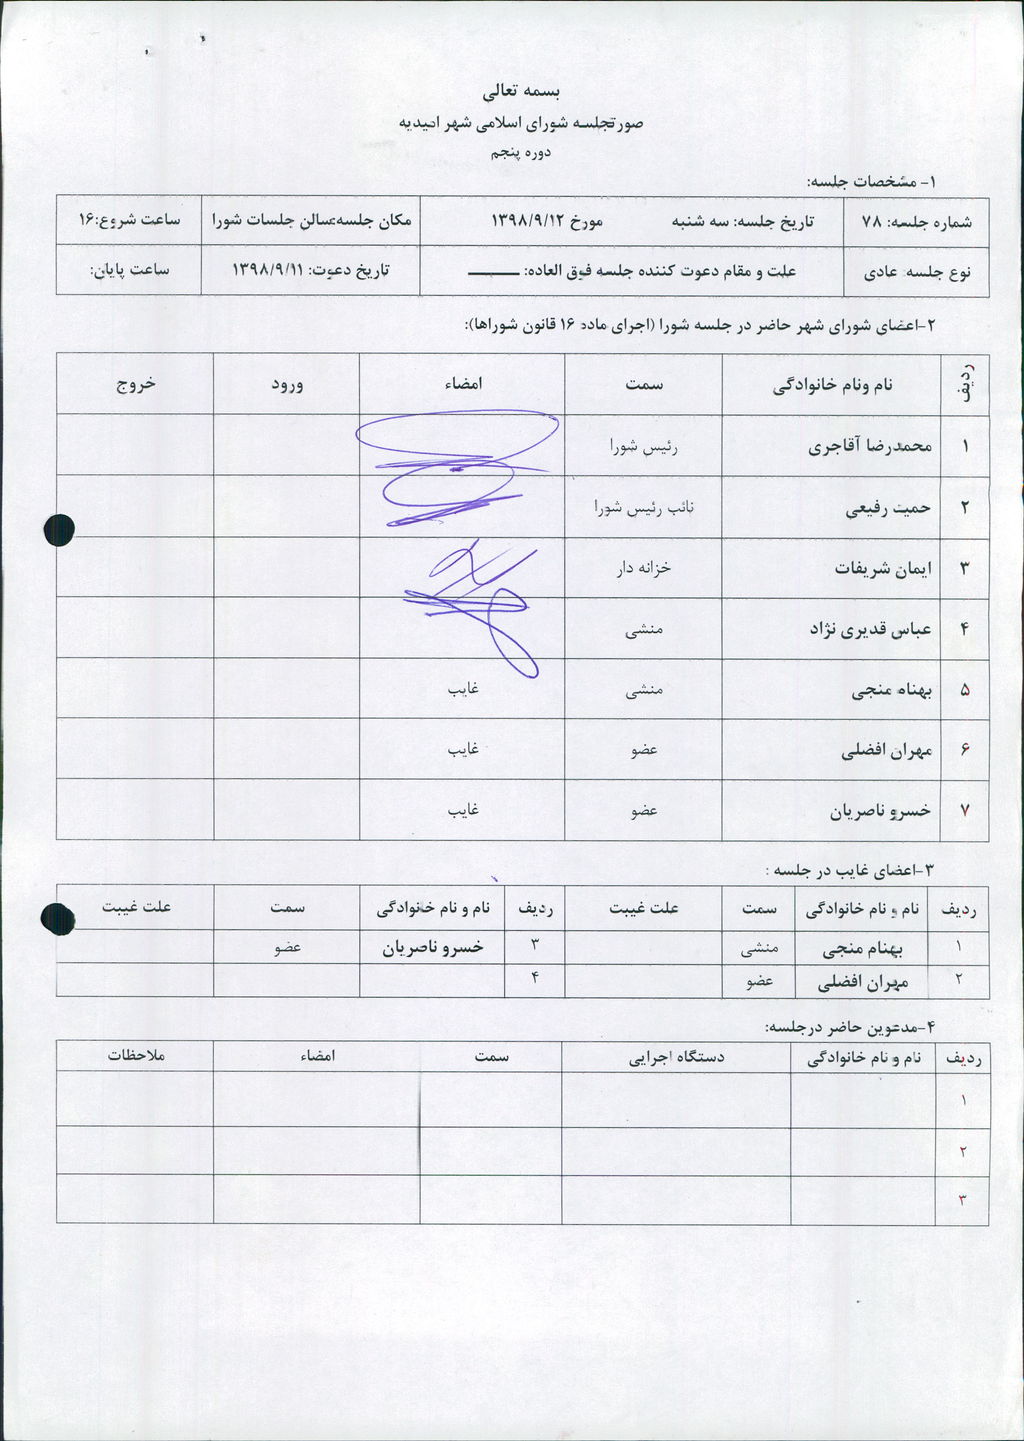 بسمه تعالی
صورتجلسه شورای اسلامی شهر امیدیه
دوره پنجم
۱- مشخصات جلسه:
شماره جلسه: ۷۸ تاریخ جلسه: سه شنبه مورخ ۱۳۹۸/۹/۱۲ مکان جلسه:سالن جلسات شورا ساعت شروع:۱۶
نوع جلسه: عادی علت و مقام دعوت کننده جلسه فوق العاده: ــــــــ تاریخ دعوت: ۱۳۹۸/۹/۱۱ ساعت پایان:
۲-اعضای شورای شهر حاضر در جلسه شورا (اجرای ماده ۱۶ قانون شوراها):
ردیف نام ونام خانوادگی سمت امضاء ورود خروج
۱ محمدرضا آقاجری رئیس شورا
۲ حمید رفیعی نائب رئیس شورا
۳ ایمان شریفات خزانه دار
۴ عباس قدیری نژاد منشی
۵ بهنام منجی منشی غایب
۶ مهران افضلی عضو غایب
۷ خسرو ناصریان عضو غایب
۳-اعضای غایب در جلسه :
ردیف نام و نام خانوادگی سمت علت غیبت ردیف نام و نام خانوادگی سمت علت غیبت
۱ بهنام منجی منشی ۳ خسرو ناصریان عضو
۲ مهران افضلی عضو ۴
۴-مدعوین حاضر درجلسه:
ردیف نام و نام خانوادگی دستگاه اجرایی سمت امضاء ملاحظات
۱
۲
۳